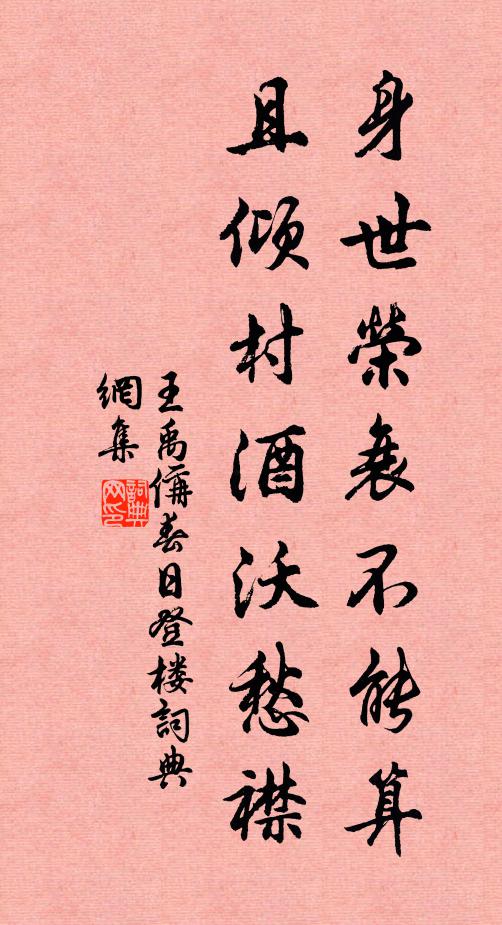 身世榮衰不能算
且傾村酒沃愁襟
王禹偁春日登楼詞典
網集
詞典
网印